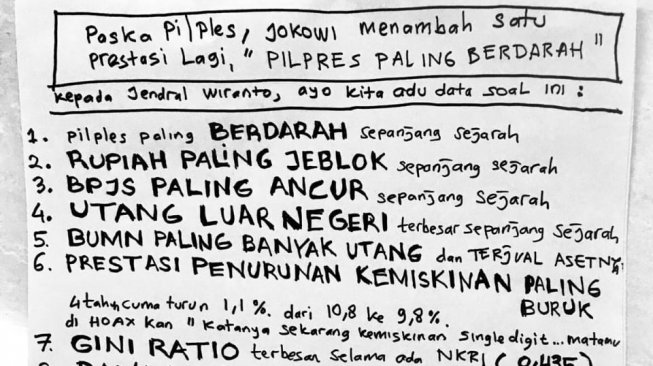 Paska Pilples, JOKOWI Menambah Satu
Prestasi Lagi, " PILPRES PALING BERDARAH "
kepada Jendral Wiranto, ayo kita adu data soal ini :
1. Pilples paling BERDARAH sepanjang sejarah
2. RUPIAH PALING JEBLOK sepanjang sejarah
3. BPJS PALING ANCUR sepanjang sejarah
4. UTANG LUAR NEGERI terbesar sepanjang sejarah
5. BUMN PALING BANYAK UTANG dan TERJUAL ASETNYA
6. PRESTASI PENURUNAN KEMISKINAN PALING
BURUK
4 tahun cuma turun 1,1 %. dari 10,8 ke 9,8%.
di HOAX kan " katanya sekarang kemiskinan single digit... matamu
7. GINI RATIO terbesar selama ada NKRI ( 0,435 )